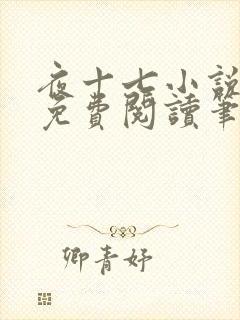 夜十七小說
免費閱讀筆
卿青妤